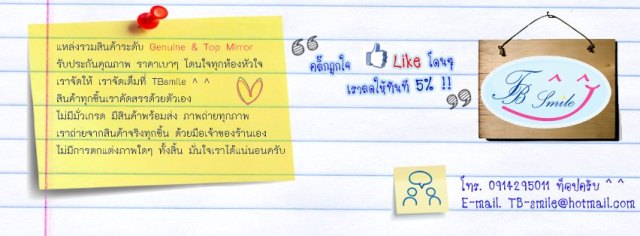 แหล่งรวมสินค้าระดับ Genuine & Top Mirror
รับประกันคุณภาพ ราคาเบาๆ โดนใจทุกท้องหัวใจ
เราจัดให้ เราจัดเต็มที่ TBsmile ^ ^
สินค้าทุกชิ้นเราคัดสรรด้วยตัวเอง
ไม่มีมั่วเกรด มีสินค้าพร้อมส่ง ภาพถ่ายทุกภาพ
เราถ่ายจากสินค้าจริงทุกชิ้น ด้วยมือเจ้าของร้านเอง
ไม่มีการตกแต่งภาพใดๆ ทั้งสิ้น มั่นใจเราได้แน่นอนครับ
“ คลิ๊กถูกใจ Like โดนๆ
เราลดให้ทันที 5% !! ”
TB Smile
โทร. 0914295011 ท็อปครับ ^ ^
E-mail. TB-smile@hotmail.com